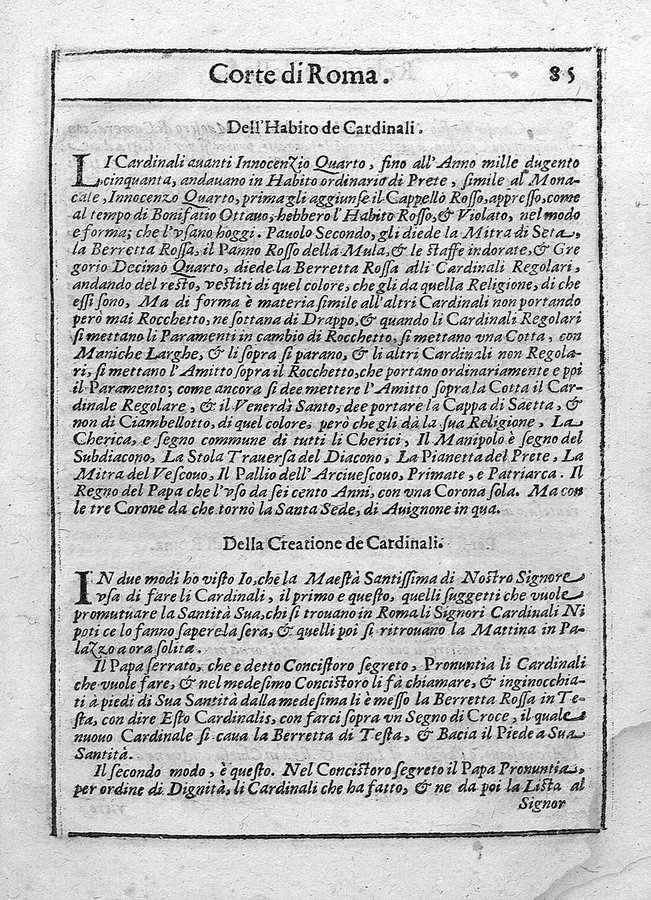 Corte di Roma. 85
Dell'Habito de Cardinali.
LI Cardinali auanti Innocenzio Quarto, fino all'Anno mille dugento
cinquanta, andauano in Habito ordinario di Prete, simile al Mona-
cale, Innocenzo Quarto, prima gli aggiunse il Cappello Rosso, appresso, come
al tempo di Bonifatio Ottauo, hebbero l'Habito Rosso, & Violato, nel modo
e forma; che l'vsano hoggi. Pauolo Secondo, gli diede la Mitra di Seta,
la Berretta Rossa, il Panno Rosso della Mula, & le staffe indorate, & Gre
gorio Decimo Quarto, diede la Berretta Rossa alli Cardinali Regolari,
andando del resto, vestiti di quel colore, che gli da quella Religione, di che
essi sono, Ma di forma è materia simile all'altri Cardinali non portando
però mai Rocchetto, ne sottana di Drappo, & quando li Cardinali Regolari
si mettano li Paramenti in cambio di Rocchetto, si mettano vna Cotta, con
Maniche Larghe, & li sopra si parano, & li altri Cardinali non Regola-
ri, si mettano l'Amitto sopra il Rocchetto, che portano ordinariamente e poi
il Paramento; come ancora si dee mettere l'Amitto sopra la Cotta il Car-
dinale Regolare, & il Venerdì Santo, dee portare la Cappa di Saetta, &
non di Ciambellotto, di quel colore, però che gli dà la sua Religione, La
Cherica, e segno commune di tutti li Cherici, Il Manipolo è segno del
Subdiacono, La Stola Trauersa del Diacono, La Pianetta del Prete, La
Mitra del Vescouo, Il Pallio dell'Arciuescouo, Primate, e Patriarca. Il
Regno del Papa che l'vso da sei cento Anni, con vna Corona sola. Ma con
le tre Corone da che tornò la Santa Sede, di Auignone in qua.
Della Creatione de Cardinali.
IN due modi ho visto Io, che la Maestà Santissima di Nostro Signore
vsa di fare li Cardinali, il primo e questo, quelli suggetti che vuole
promutuare la Santità Sua, chi si trouano in Roma li Signori Cardinali Ni
poti ce lo fanno sapere la sera, & quelli poi si ritrouano la Mattina in Pa-
lazzo a ora solita.
Il Papa serrato, che e detto Concistoro segreto, Pronuntia li Cardinali
che vuole fare, & nel medesimo Concistoro li fà chiamare, & inginocchia-
ti à piedi di Sua Santità dalla medesima li è messo la Berretta Rossa in Te-
sta, con dire Esto Cardinalis, con farci sopra vn Segno di Croce, il quale
nuouo Cardinale si caua la Berretta di Testa, & Bacia il Piede a Sua
Santità.
Il secondo modo, è questo. Nel Concistoro segreto il Papa Pronuntia,
per ordine di Dignità, li Cardinali che ha fatto, & ne da poi la Lista al
Signor